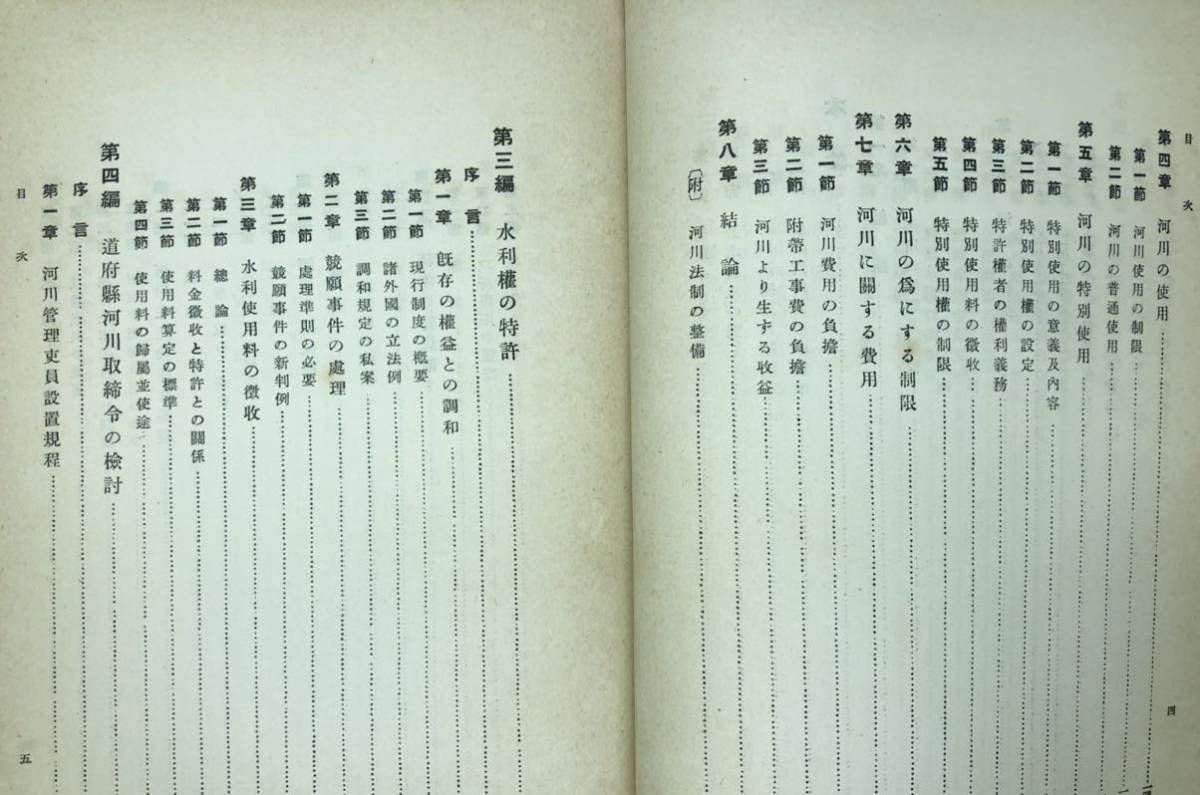 目次
第四章 河川の使用
第一節 河川使用の制限
第二節 河川の普通使用
第五章 河川の特別使用
第一節 特別使用の意義及內容
第二節 特別使用權の設定
第三節 特許權者の權利義務
第四節 特別使用料の徵收
第五節 特別使用權の制限
第六章 河川の爲にする制限
第七章 河川に關する費用
第一節 河川費用の負擔
第二節 附帶工事費の負擔
第三節 河川より生ずる收益
第八章 結論
〔附〕 河川法制の整備
四
第三編 水利權の特許
序言
第一章 旣存の權益との調和
第一節 現行制度の槪要
第二節 諸外國の立法例
第三節 調和規定の私案
第二章 競願事件の處理
第一節 處理準則の必要
第二節 競願事件の新判例
第三章 水利使用料の徵收
第一節 總論
第二節 料金徵收と特許との關係
第三節 使用料算定の標準
第四節 使用料の歸屬並使途
第四編 道府縣河川取締令の檢討
序言
第一章 河川管理吏員設置規程
目次
五